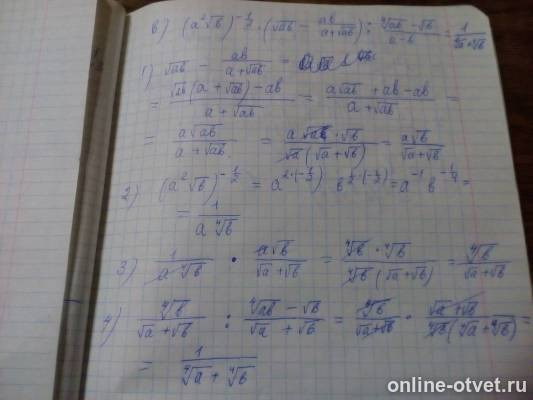 в) (a²√b)^(-1/2) · (√ab − ab/(a+√ab)) : (⁴√ab − √b)/(a−b) = 1/(⁴√a+⁴√b)
1) √ab − ab/(a+√ab) =
= (√ab(a + √ab) − ab)/(a + √ab) = (a√ab + ab − ab)/(a + √ab) =
= a√ab/(a + √ab) = a√a·√b/(√a(√a+√b)) = a√b/(√a+√b)
2) (a²√b)^(-1/2) = a^(2·(-1/2)) b^(1/2·(-1/2)) = a⁻¹ b^(-1/4) =
= 1/(a⁴√b)
3) 1/(a⁴√b) · a√b/(√a+√b) = ⁴√b·⁴√b/(⁴√b(√a+√b)) = ⁴√b/(√a+√b)
4) ⁴√b/(√a+√b) : (⁴√ab − √b)/(√a + √b) = ⁴√b/(√a+√b) · (√a+√b)/(⁴√b(⁴√a+⁴√b)) =
= 1/(⁴√a + ⁴√b)
online-otvet.ru